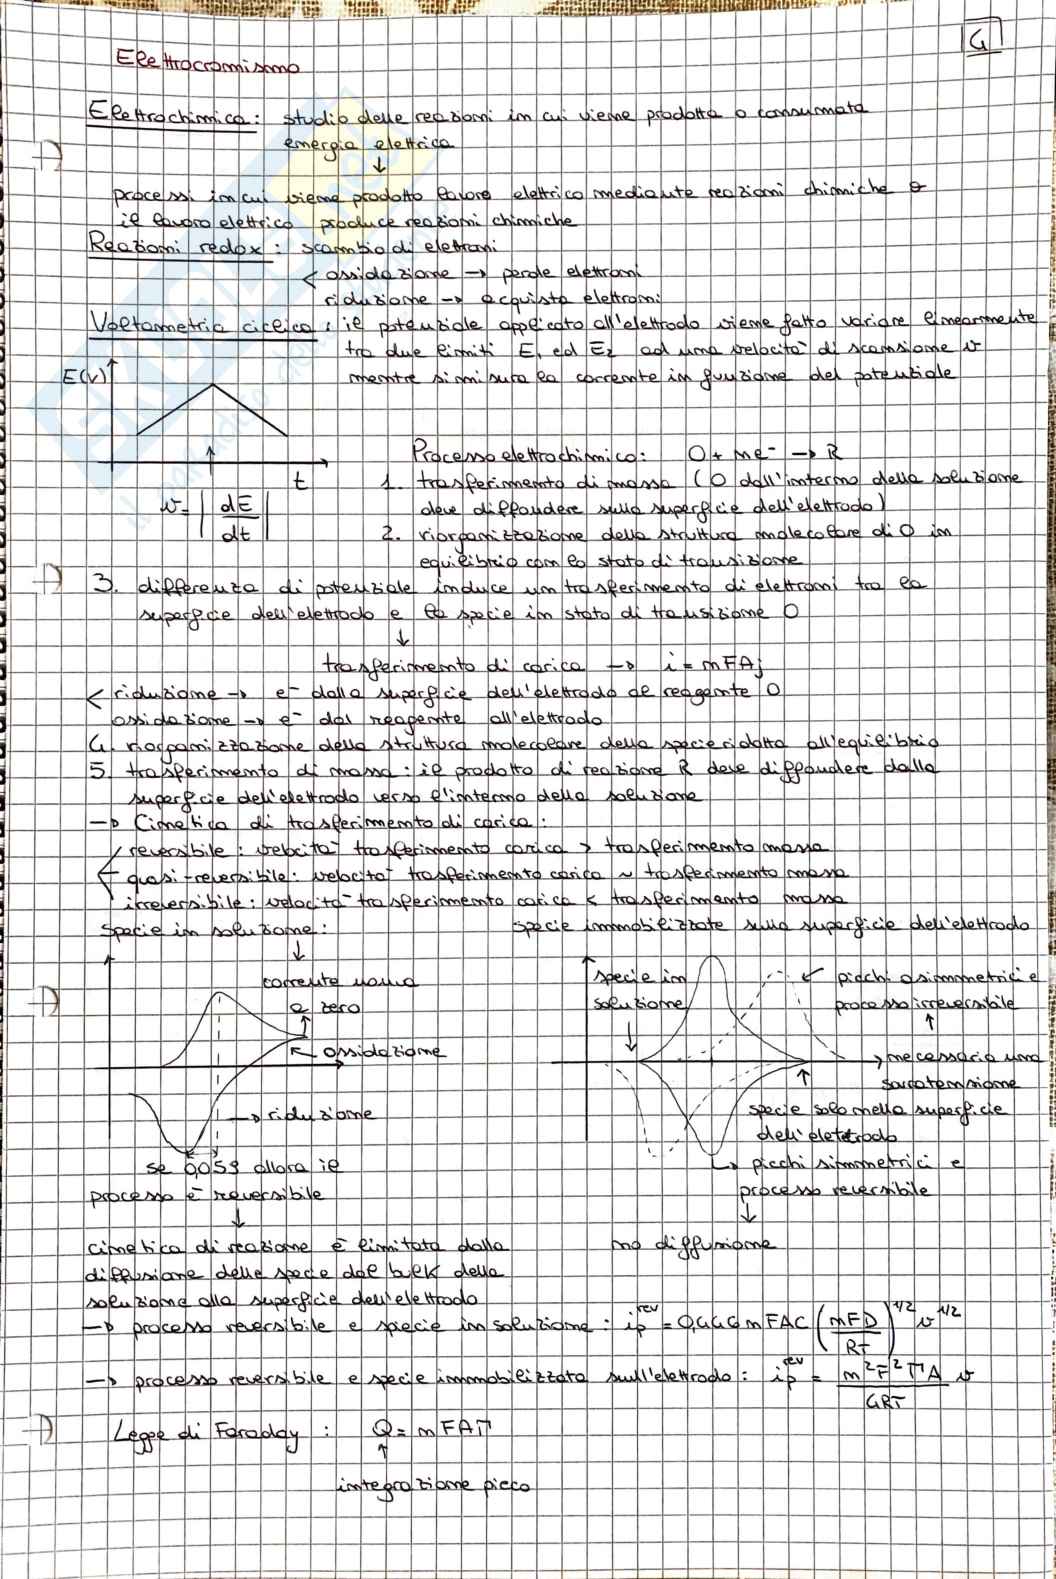 4
Elettrocromismo
Elettrochimica: studio delle reazioni in cui viene prodotta o consumata
energia elettrica
↓
processi in cui viene prodotto lavoro elettrico mediante reazioni chimiche o
il lavoro elettrico produce reazioni chimiche
Reazioni redox: scambio di elettroni
< ossidazione → perde elettroni
riduzione → acquista elettroni
Voltametria ciclica: il potenziale applicato all'elettrodo viene fatto variare linearmente
tra due limiti E₁ ed E₂ ad una velocità di scansione v
mentre si misura la corrente in funzione del potenziale
E(V)
t
v = |dE/dt|
Processo elettrochimico: O + ne⁻ → R
1. trasferimento di massa (O dall'interno della soluzione
deve diffondere sulla superficie dell'elettrodo)
2. riorganizzazione della struttura molecolare di O in
equilibrio con lo stato di transizione
3. differenza di potenziale induce un trasferimento di elettroni tra la
superficie dell'elettrodo e la specie in stato di transizione O
↓
trasferimento di carica → i = nFAj
< riduzione → e⁻ dalla superficie dell'elettrodo al reagente O
ossidazione → e⁻ dal reagente all'elettrodo
4. riorganizzazione della struttura molecolare della specie ridotta all'equilibrio
5. trasferimento di massa: il prodotto di reazione R deve diffondere dalla
superficie dell'elettrodo verso l'interno della soluzione
→ Cinetica di trasferimento di carica:
reversibile: velocità trasferimento carica > trasferimento massa
quasi-reversibile: velocità trasferimento carica ~ trasferimento massa
irreversibile: velocità trasferimento carica < trasferimento massa
Specie in soluzione:
↓
corrente
a zero
↑
← ossidazione
→ riduzione
se 0,059 allora il
processo è reversibile
↓
cinetica di reazione è limitata dalla
diffusione delle specie dal bulk della
soluzione alla superficie dell'elettrodo
Specie immobilizzate sulla superficie dell'elettrodo
specie in
soluzione
↓
← picchi asimmetrici e
processo irreversibile
↑
necessaria una
sovratensione
↑
specie solo nella superficie
dell'elettrodo
→ picchi simmetrici e
processo reversibile
↓
no diffusione
→ processo reversibile e specie in soluzione: iₚʳᵉᵛ = 0,446 nFAC (nFD/RT)^1/2 v^1/2
→ processo reversibile e specie immobilizzata sull'elettrodo: iₚʳᵉᵛ = n²F²ΓA/4RT v
Legge di Faraday: Q = nFAΓ
↑
integrazione picco